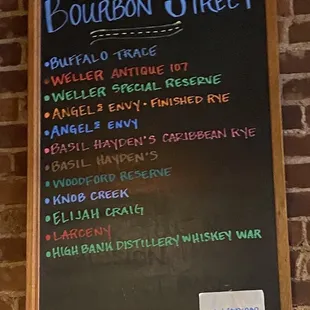 BOURBON STREET
• BUFFALO TRACE
• WELLER ANTIQUE 107
• WELLER SPECIAL RESERVE
• ANGEL'S ENVY • FINISHED RYE
• ANGEL'S ENVY
• BASIL HAYDEN'S CARIBBEAN RYE
• BASIL HAYDEN'S
• WOODFORD RESERVE
• KNOB CREEK
• ELIJAH CRAIG
• LARCENY
• HIGH BANK DISTILLERY WHISKEY WAR